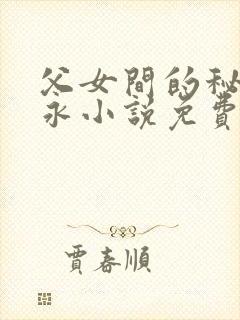 父女間的秘
永小説免費
賈春順